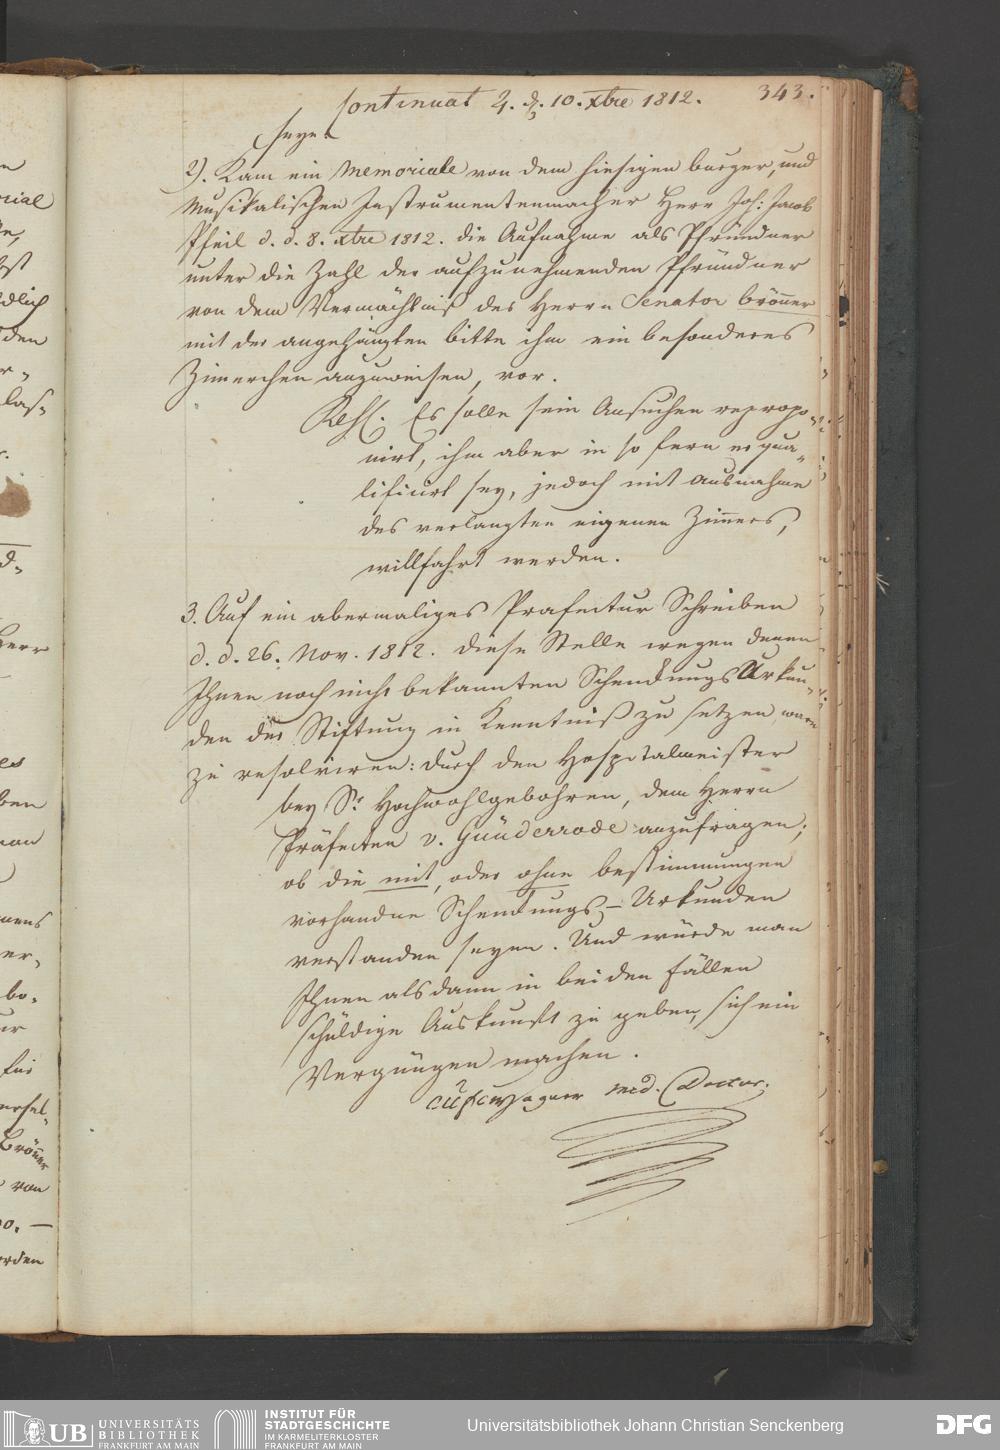 Continuat 4. d. 10. Xbre 1812. 343.
seye
2). Kam ein Memoriale von dem hiesigen burger, und
Musikalischen Instrumentenmacher Herr Joh: Jacob
Pfeil d. d. 8. xbre 1812. die Aufnahme als Pfründner
unter die Zahl der aufzunehmenden Pfründner
von dem Vermächtniß des Herrn Senator brönner
mit der angehängten bitte ihm ein besonderes
Zimerchen anzuweisen, vor.
Resl. Es solle sein Ansuchen repropo-
nirt, ihm aber in so fern er qua-
lificirt sey, jedoch mit Ausnahme
des verlangten eigenen Zimers,
willfahrt werden.
3. Auf ein abermaliges Präfectur Schreiben
d. d. 26. Nov. 1812. diese Stelle wegen denen
Ihnen noch nicht bekannten Schenkungs Urkun-
den der Stiftung in Kenntniß zu setzen, ware
zu resolviren: durch den Hospitalmeister
bey Sr. Hochwohlgebohren, dem Herrn
Präfecten v. Günderrode anzufragen;
ob die mit, oder ohne bestimmungen
vorhandne Schenkungs-Urkunden
verstanden seyen. Und würde man
Ihnen alsdann in beiden Fällen
schüldige Auskunft zu geben, sich ein
Vergnügen machen.
med. Doctor.
rial
den
las-
Herr
ben
er-
bo-
für
Brönner
von
UB UNIVERSITÄTS
BIBLIOTHEK
FRANKFURT AM MAIN
INSTITUT FÜR
STADTGESCHICHTE
IM KARMELITERKLOSTER
FRANKFURT AM MAIN
Universitätsbibliothek Johann Christian Senckenberg
DFG